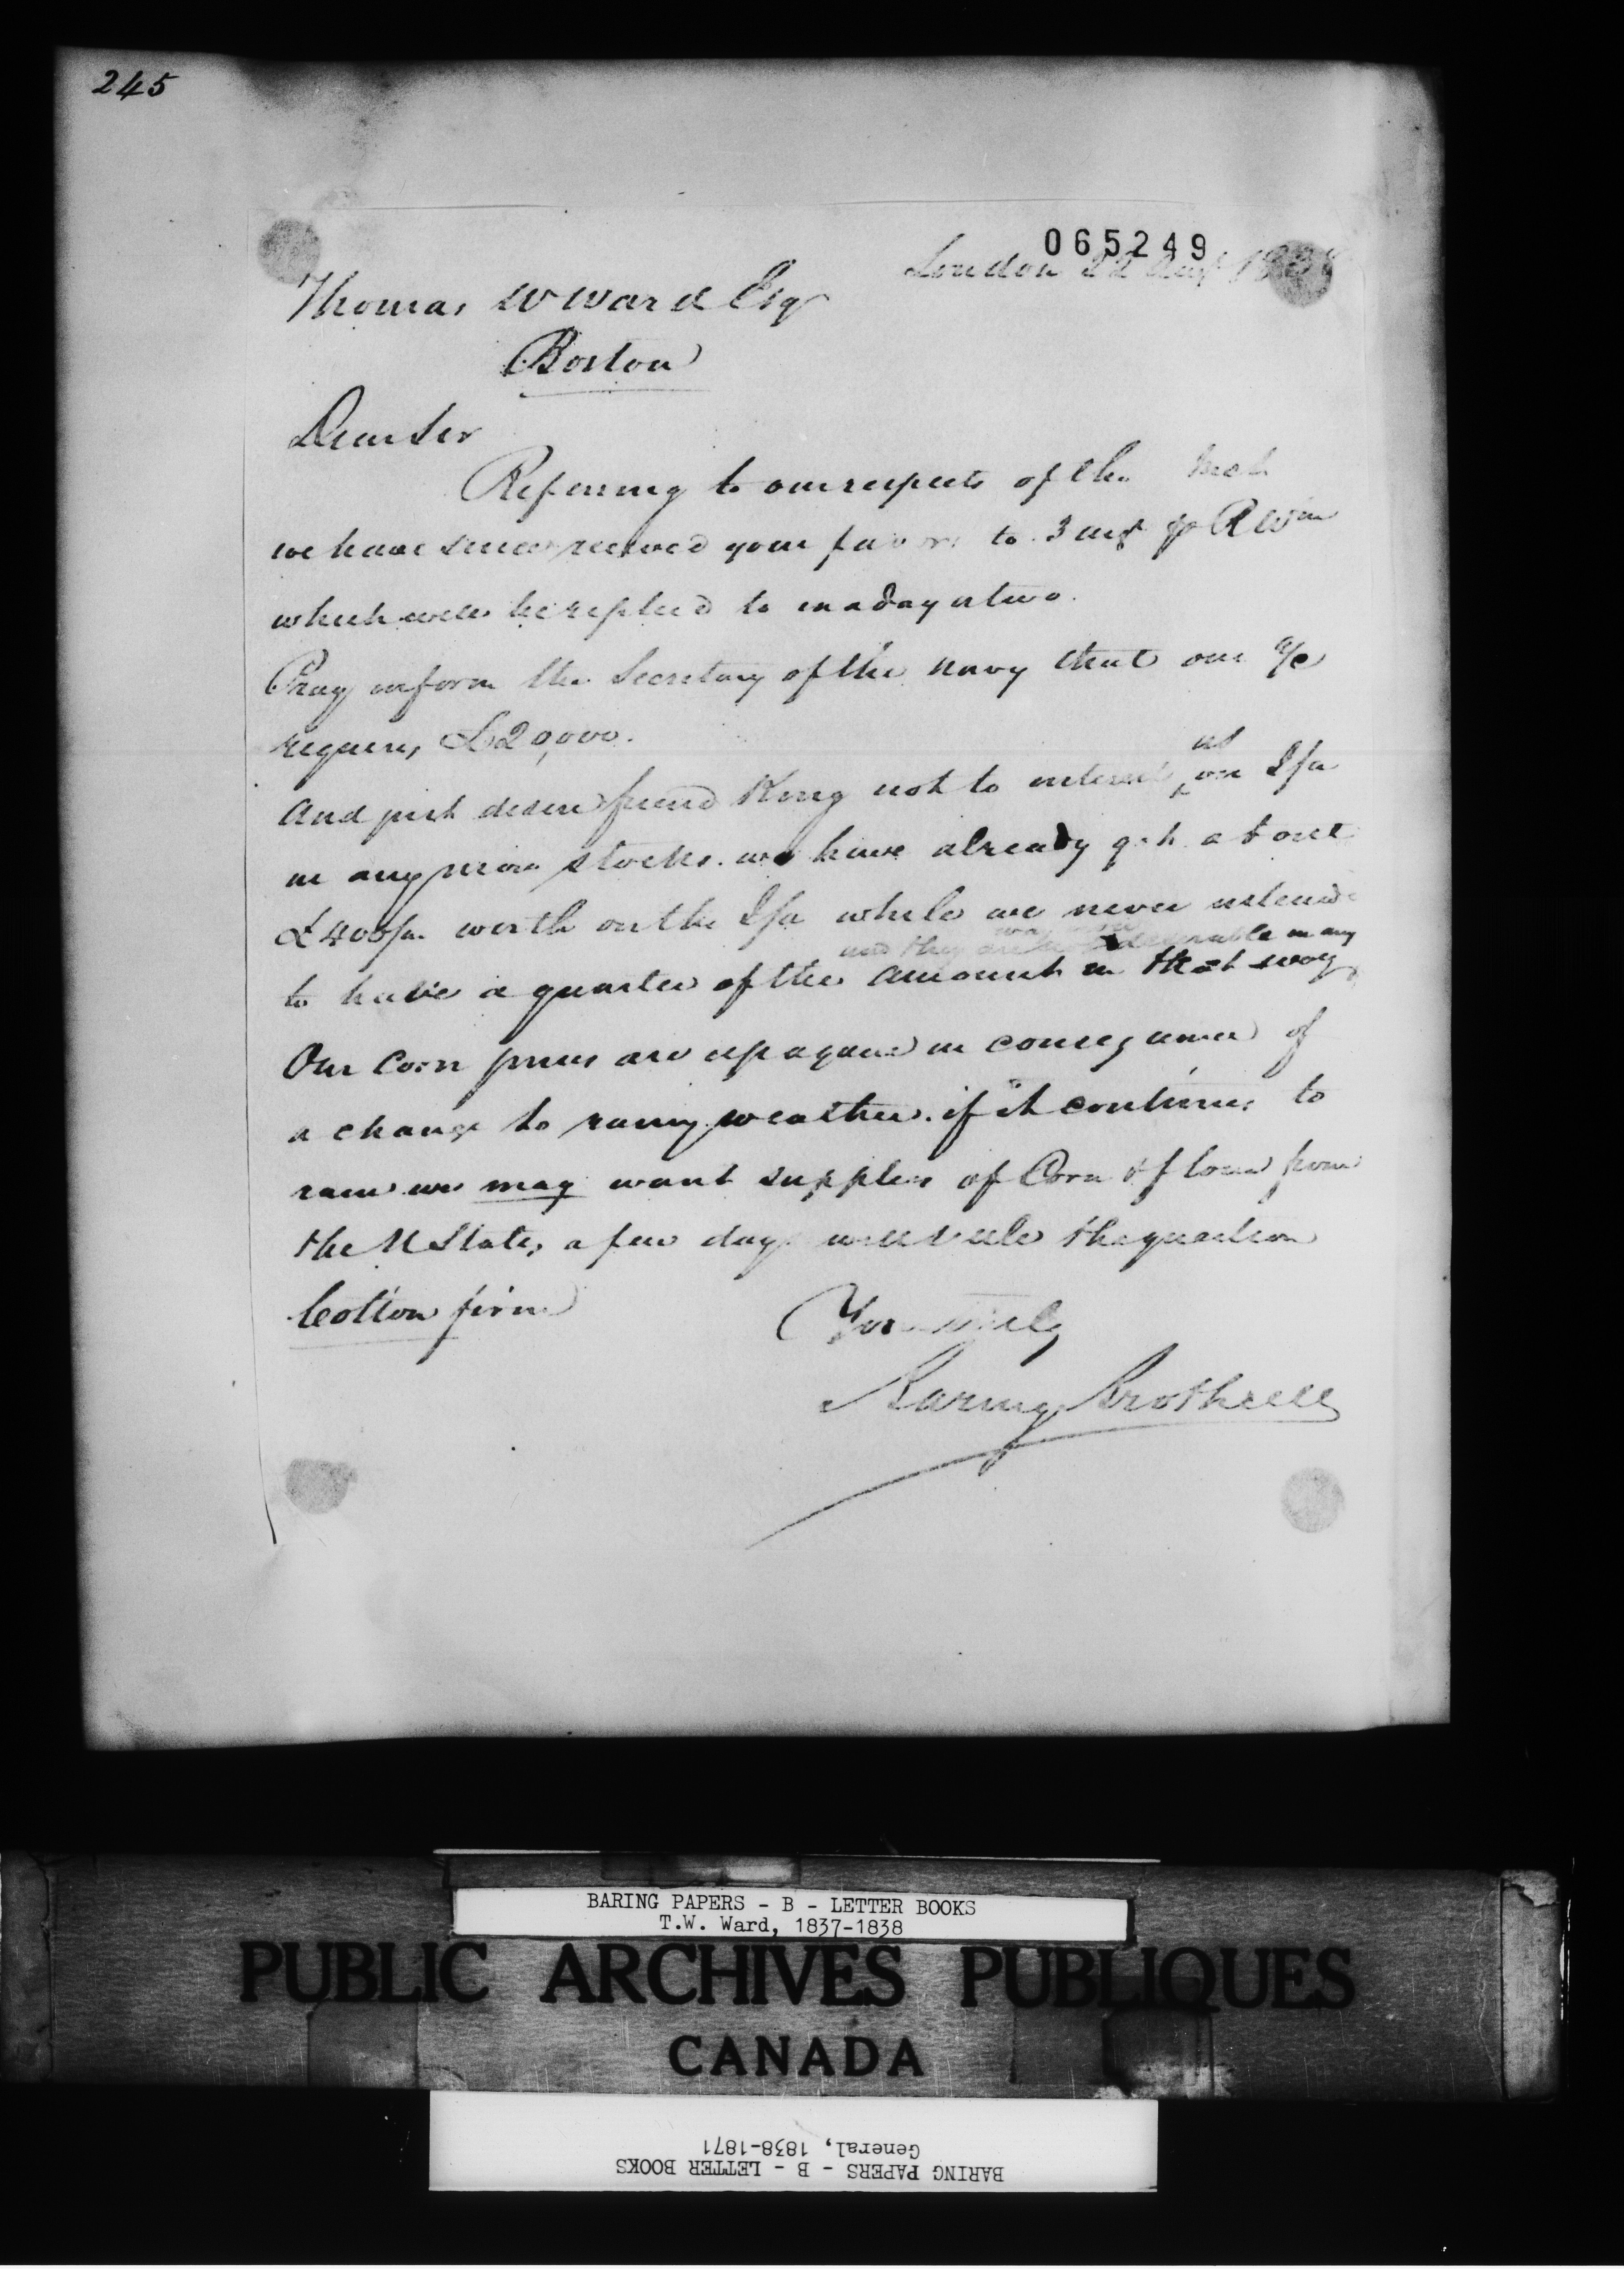 245
065249
London 22 Augt 1838
Thomas W Ward Esqr
Boston
Dear Sir
Referring to our respects of the Inst
we have since received your favors to 3 Augt p R Wm
which will be replied to in a day or two.
Pray inform the Secretary of the Navy that our a/c
requires £20,000.
And just desire friend King not to interest us on
in any more stocks. we have already got about
£400/m worth on the while we never intend
and they are not desirable in any
to have a quarter of the amount in that way
Our Corn prices are up again in consequence of
a change to rainy weather. if it continues to
rain we may want supplies of Corn & flour from
the U States, a few days will settle the question
Cotton firm
Yours truly
Baring Brothers
BARING PAPERS - B - LETTER BOOKS
T.W. Ward, 1837-1838
PUBLIC ARCHIVES PUBLIQUES
CANADA
BARING PAPERS - B - LETTER BOOKS
General, 1838-1871